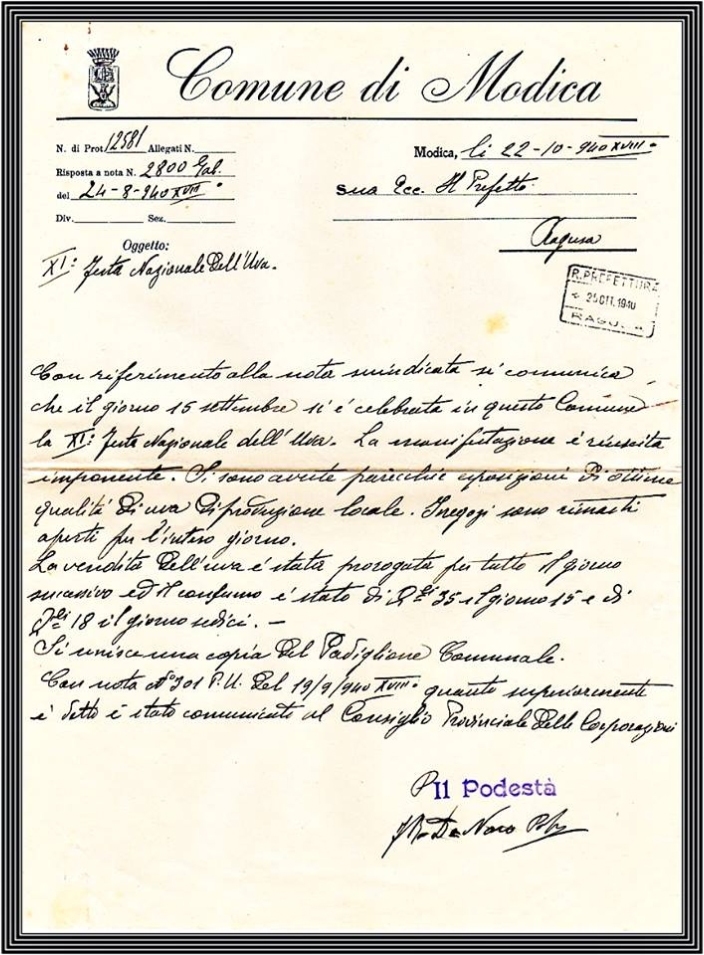 Comune di Modica
N. di Prot. 12581 Allegati N.
Risposta a nota N. 2800 Gab.
del 24-8-940 XVIII°
Div. Sez.
Modica, li 22-10-940 XVIII°
Sua Ecc. Il Prefetto
Ragusa
Oggetto:
XI: Festa Nazionale Dell'Uva.
R. PREFETTURA
25 OTT. 1940
RAGUSA
Con riferimento alla nota suindicata si comunica
che il giorno 15 settembre si è celebrata in questo Comune
la XI: Festa Nazionale dell'Uva. La manifestazione è riuscita
imponente. Si sono avute parecchie esposizioni di ottime
qualità di uva di produzione locale. I negozi sono rimasti
aperti per l'intero giorno.
La vendita dell'uva è stata prorogata per tutto il giorno
successivo ed il consumo è stato di Q.li 35 il giorno 15 e di
Q.li 18 il giorno sedici. –
Si unisce una copia del Padiglione Comunale.
Con nota N° 301 P.U. del 19/9/940 XVIII° quanto superiormente
è detto è stato comunicato al Consiglio Provinciale delle Corporazioni
P Il Podestà